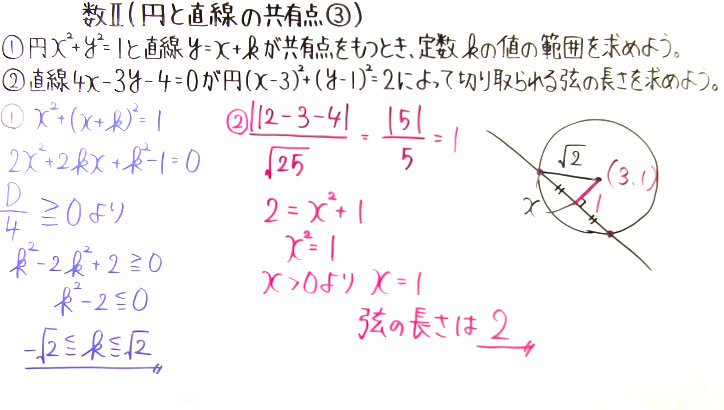 数Ⅱ(円と直線の共有点③)
①円x²+y²=1と直線y=x+kが共有点をもつとき、定数kの値の範囲を求めよう。
②直線4x-3y-4=0が円(x-3)²+(y-1)²=2によって切り取られる弦の長さを求めよう。
① x²+(x+k)²=1
2x²+2kx+k²-1=0
D/4 ≧0より
k²-2k²+2≧0
k²-2≦0
-√2≦k≦√2
② |12-3-4|/√25 = |5|/5 = 1
2=x²+1
x²=1
x>0より x=1
弦の長さは 2
√2
(3,1)
1
x